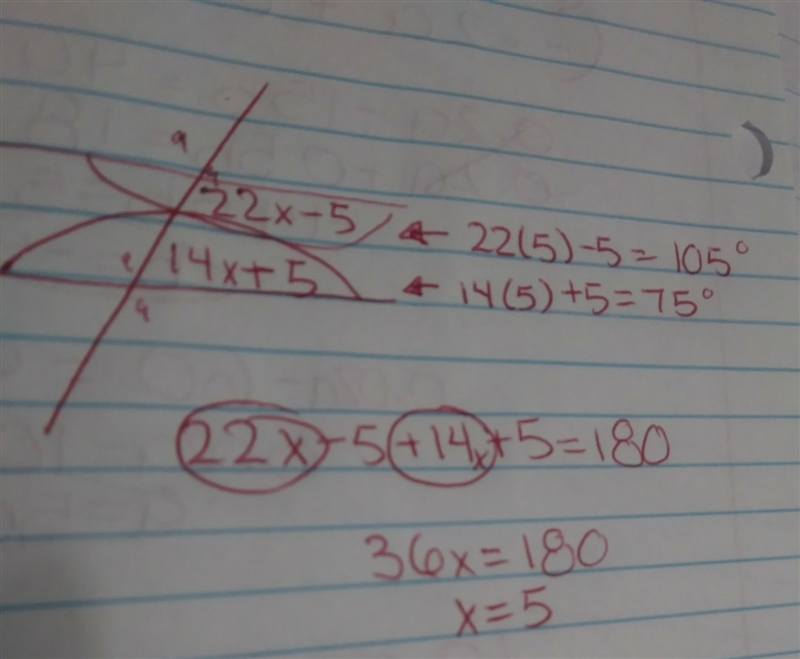 22x-5 ← 22(5)-5=105°
14x+5 ← 14(5)+5=75°
22x-5+14x+5=180
36x=180
x=5